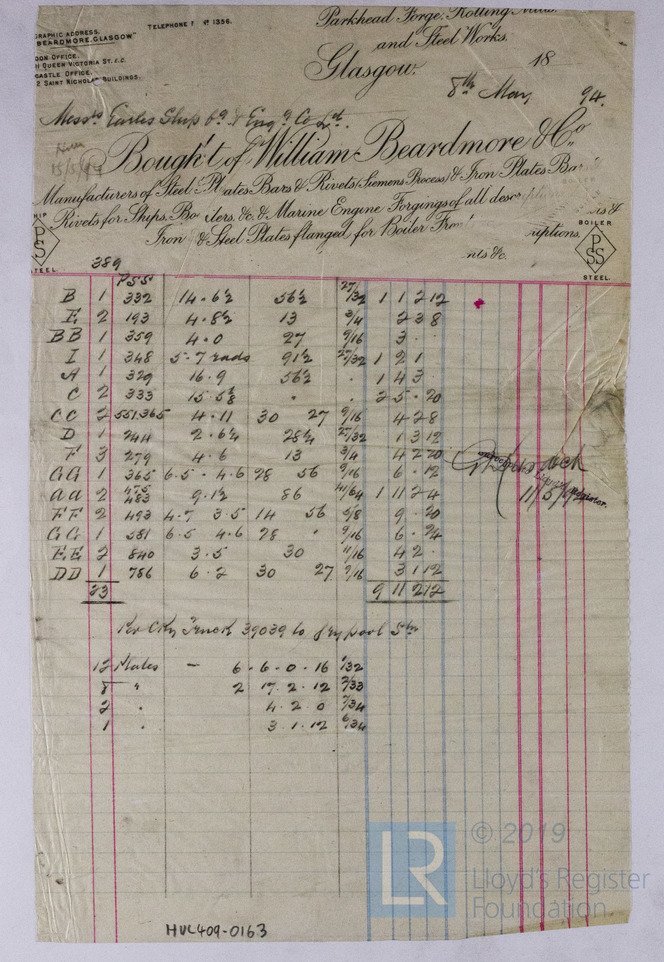 GRAPHIC ADDRESS,
BEARDMORE, GLASGOW"
TELEPHONE Nº 1356.
DON OFFICE.
QUEEN VICTORIA ST. E.C.
CASTLE OFFICE.
2 SAINT NICHOLAS BUILDINGS.
Parkhead Forge, Rolling Mills,
and Steel Works.
Glasgow. 18
8th May, 94.
Messrs Earles Ship Bg & Engg Co Ld.
15/5/94
Bought of William Beardmore & Co.
Manufacturers of Steel Plates Bars & Rivets (Siemens Process) & Iron Plates Ba
Rivets for Ships, Boilers, &c. & Marine Engine Forgings of all descriptions
Iron & Steel Plates flanged for Boiler Fron
nts &c.
PSS
STEEL.
BOILER
PSS
STEEL.
389
PSS
B 1 332 14 . 6½ 56½ 27/32 1 1 2 12
E 2 193 4 . 8½ 13 3/4 2 3 8
BB 1 359 4 . 0 27 9/16 3 . .
I 1 348 5 . 7 rads 91½ 27/32 1 2 1
A 1 329 16 . 9 56½ . 1 4 3
C 2 333 15 . 5⅝ " . 2 5 . 20
CC 2 551.365 4 . 11 30 27 9/16 4 2 8
D 1 244 2 . 6¼ 28¼ 27/32 1 3 12
F 3 279 4 . 6 13 3/4 4 2 20
GG 1 365 6.5 . 4.6 28 56 9/16 6 . 12
aa 2 475 483 9 . 1½ 86 41/64 1 11 2 4
FF 2 493 4.7 3.5 14 56 5/8 9 . 20
GG 1 581 6.5 4.6 28 " 9/16 6 . 24
EE 2 840 3 . 5 30 11/16 4 2 .
DD 1 786 6 . 2 30 27 9/16 3 1 12
23 9 11 2 12
11/5/94
Per City Truck 39039 to Drypool Stn
12 Plates — 6 . 6 . 0 . 16 1/32
8 " 2 17 . 2 . 12 2/33
2 " 4 . 2 . 0 7/34
1 " 3 . 1 . 12 6/34
HUL409-0163
LR
© 2019
Lloyd's Register
Foundation